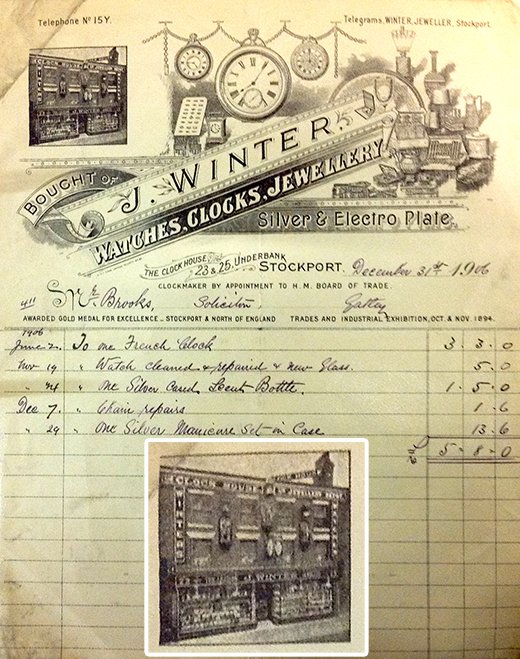 Telephone Nº 15Y.
Telegrams, WINTER, JEWELLER, Stockport.
CLOCK HOUSE
WINTERS
BOUGHT OF J. WINTER,
WATCHES, CLOCKS, JEWELLERY,
Silver & Electro Plate.
THE CLOCK HOUSE,
23 & 25, UNDERBANK
STOCKPORT. December 31st 1906
CLOCKMAKER BY APPOINTMENT TO H. M. BOARD OF TRADE.
Mr Brooks, Solicitor, Gatley
AWARDED GOLD MEDAL FOR EXCELLENCE – STOCKPORT & NORTH OF ENGLAND TRADES AND INDUSTRIAL EXHIBITION, OCT. & NOV. 1894.
1906
June 2. To one French Clock 3 . 3 . 0
Nov 19 " Watch cleaned & repaired & new Glass. 5 . 0
" 24 " One Silver Cased Scent Bottle. 1 . 5 . 0
Dec 7. " Chain repairs 1 . 6
" 29 " One Silver Manicure Set in Case 13 . 6
£ 5 . 8 . 0
CLOCK HOUSE JEWELLERY DEPOT
WINTERS
J. WINTER